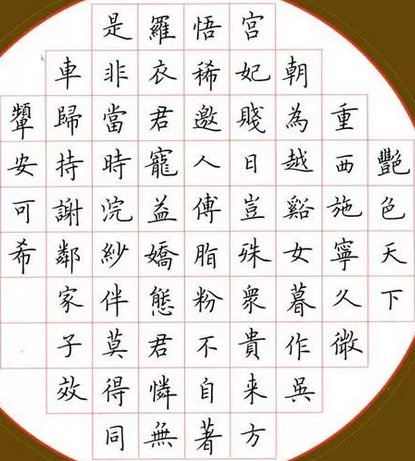 豔色天下
重西施寧久微
朝為越谿女暮作吳
宮妃賤日豈殊衆貴来方
悟稀邀人傅脂粉不自著
羅衣君寵益嬌態君憐無
是非當時浣紗伴莫得同
車歸持謝鄰家子效
顰安可希